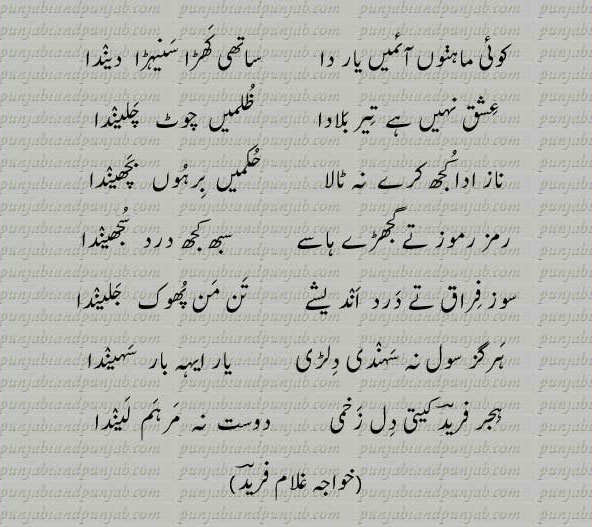 کوئی ماہنوں آئمیں یار دا ساتھی کھڑا سَنیہڑا دیندا
عِشق نہیں ہے تِیر بَلا دا ظُلمیں چوٹ چَلیندا
ناز ادا کُجھ کرے نہ ٹالا حُکمیں بِرہُوں پَچھیندا
رمز رموز تے گُجھڑے ہاسے سبھ کجھ درد سُجھیندا
سوز فِراق تے دَرد اَندیشے تَن مَن پُھوک جَلیندا
ہَرگز سول نہ سَہندی دِلڑی یار ایہہ بار سَہیندا
ہِجر فریدؔ کیتی دِل زَخمی دوست نہ مَرہَم لَیندا
(خواجہ غلام فریدؔ)